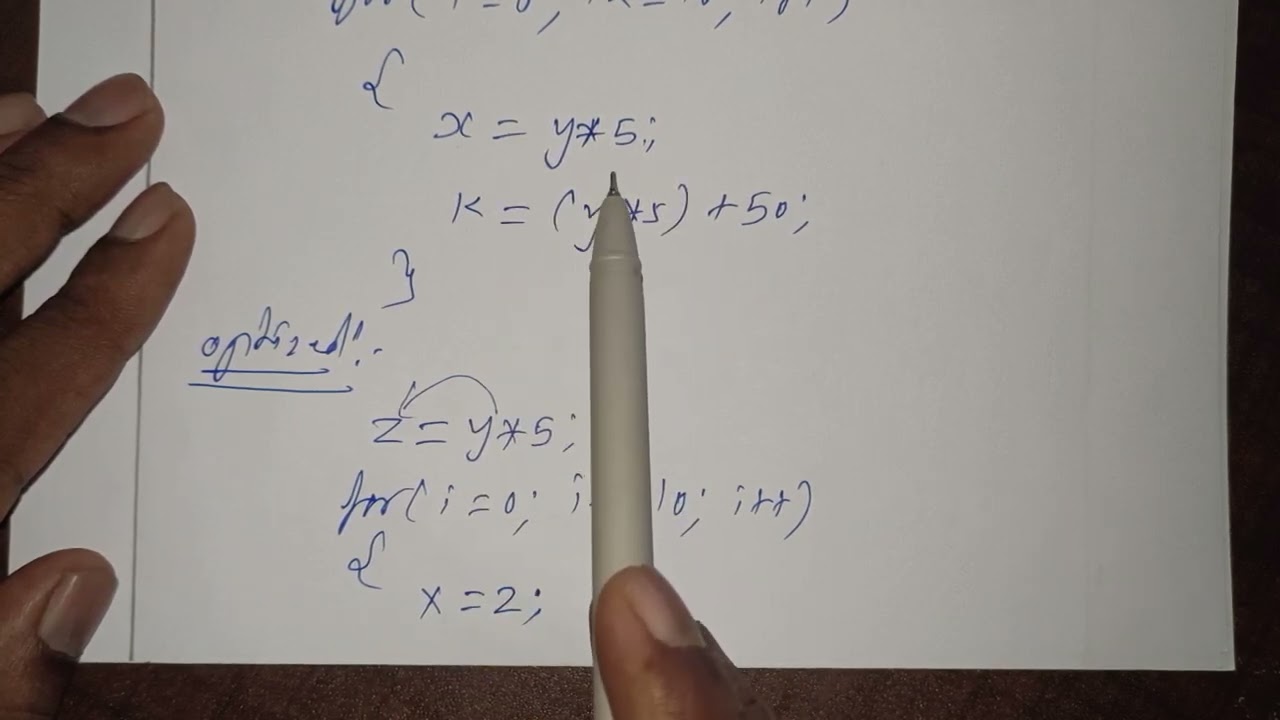 {
x = y*5;
k = (y*5) + 50;
}
optized:-
z = y*5;
for( i = 0; i 10; i++)
{
x = 2;